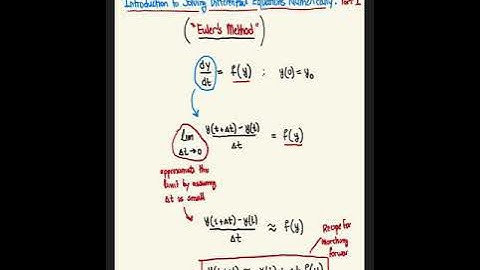 Introduction to Solving Differential Equations Numerically: Part 1
("Euler's Method")
dy/dt = f(y) ; y(0) = y₀
Lim Δt→0 (y(t+Δt) - y(t))/Δt = f(y)
approximate the
limit by assuming
Δt is small
(y(t+Δt) - y(t))/Δt ≈ f(y)
Recipe for
Marching
forward
y(t+Δt) ≈ y(t) + Δt f(y)